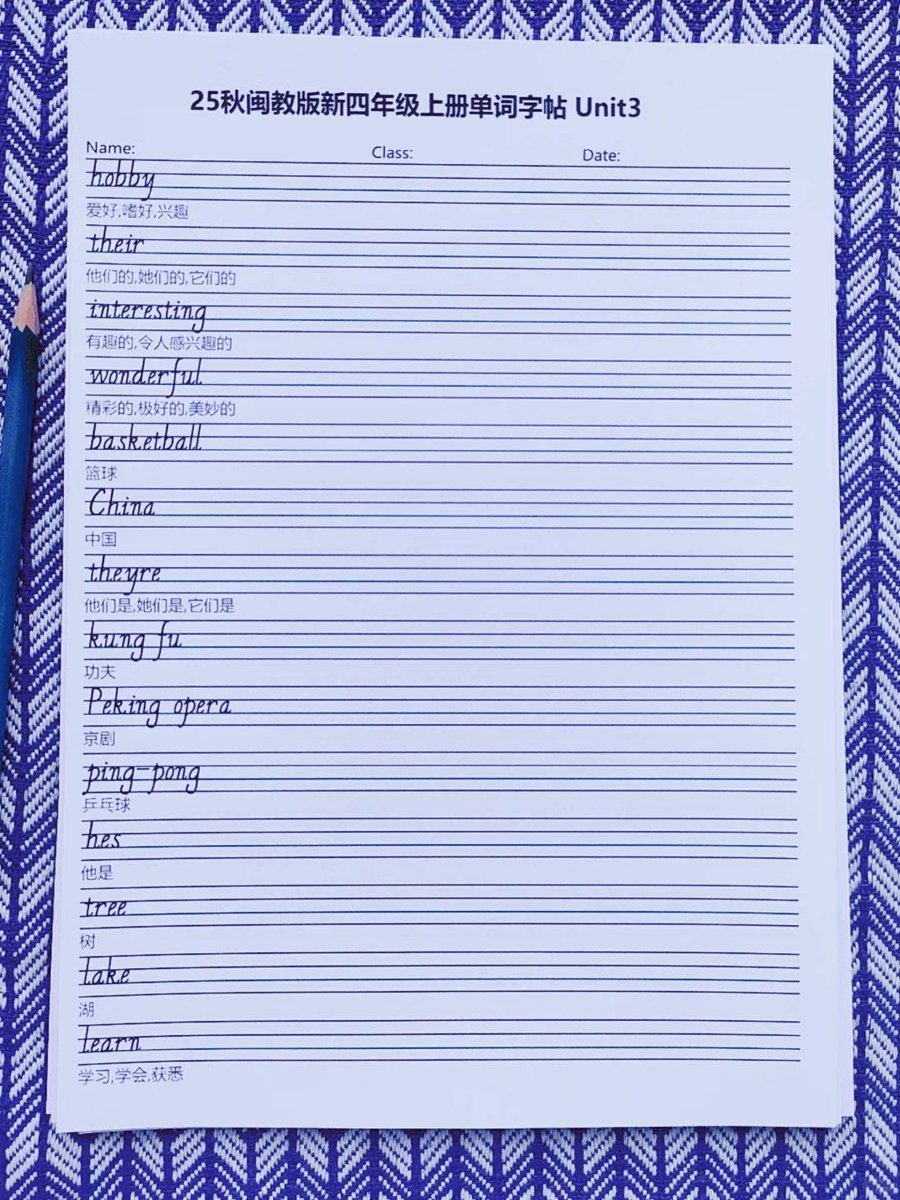 25秋闽教版新四年级上册单词字帖 Unit3
Name: Class: Date:
hobby
爱好,嗜好,兴趣
their
他们的,她们的,它们的
interesting
有趣的,令人感兴趣的
wonderful
精彩的,极好的,美妙的
basketball
篮球
China
中国
theyre
他们是,她们是,它们是
kung fu
功夫
Peking opera
京剧
ping-pong
乒乓球
hes
他是
tree
树
lake
湖
learn
学习,学会,获悉